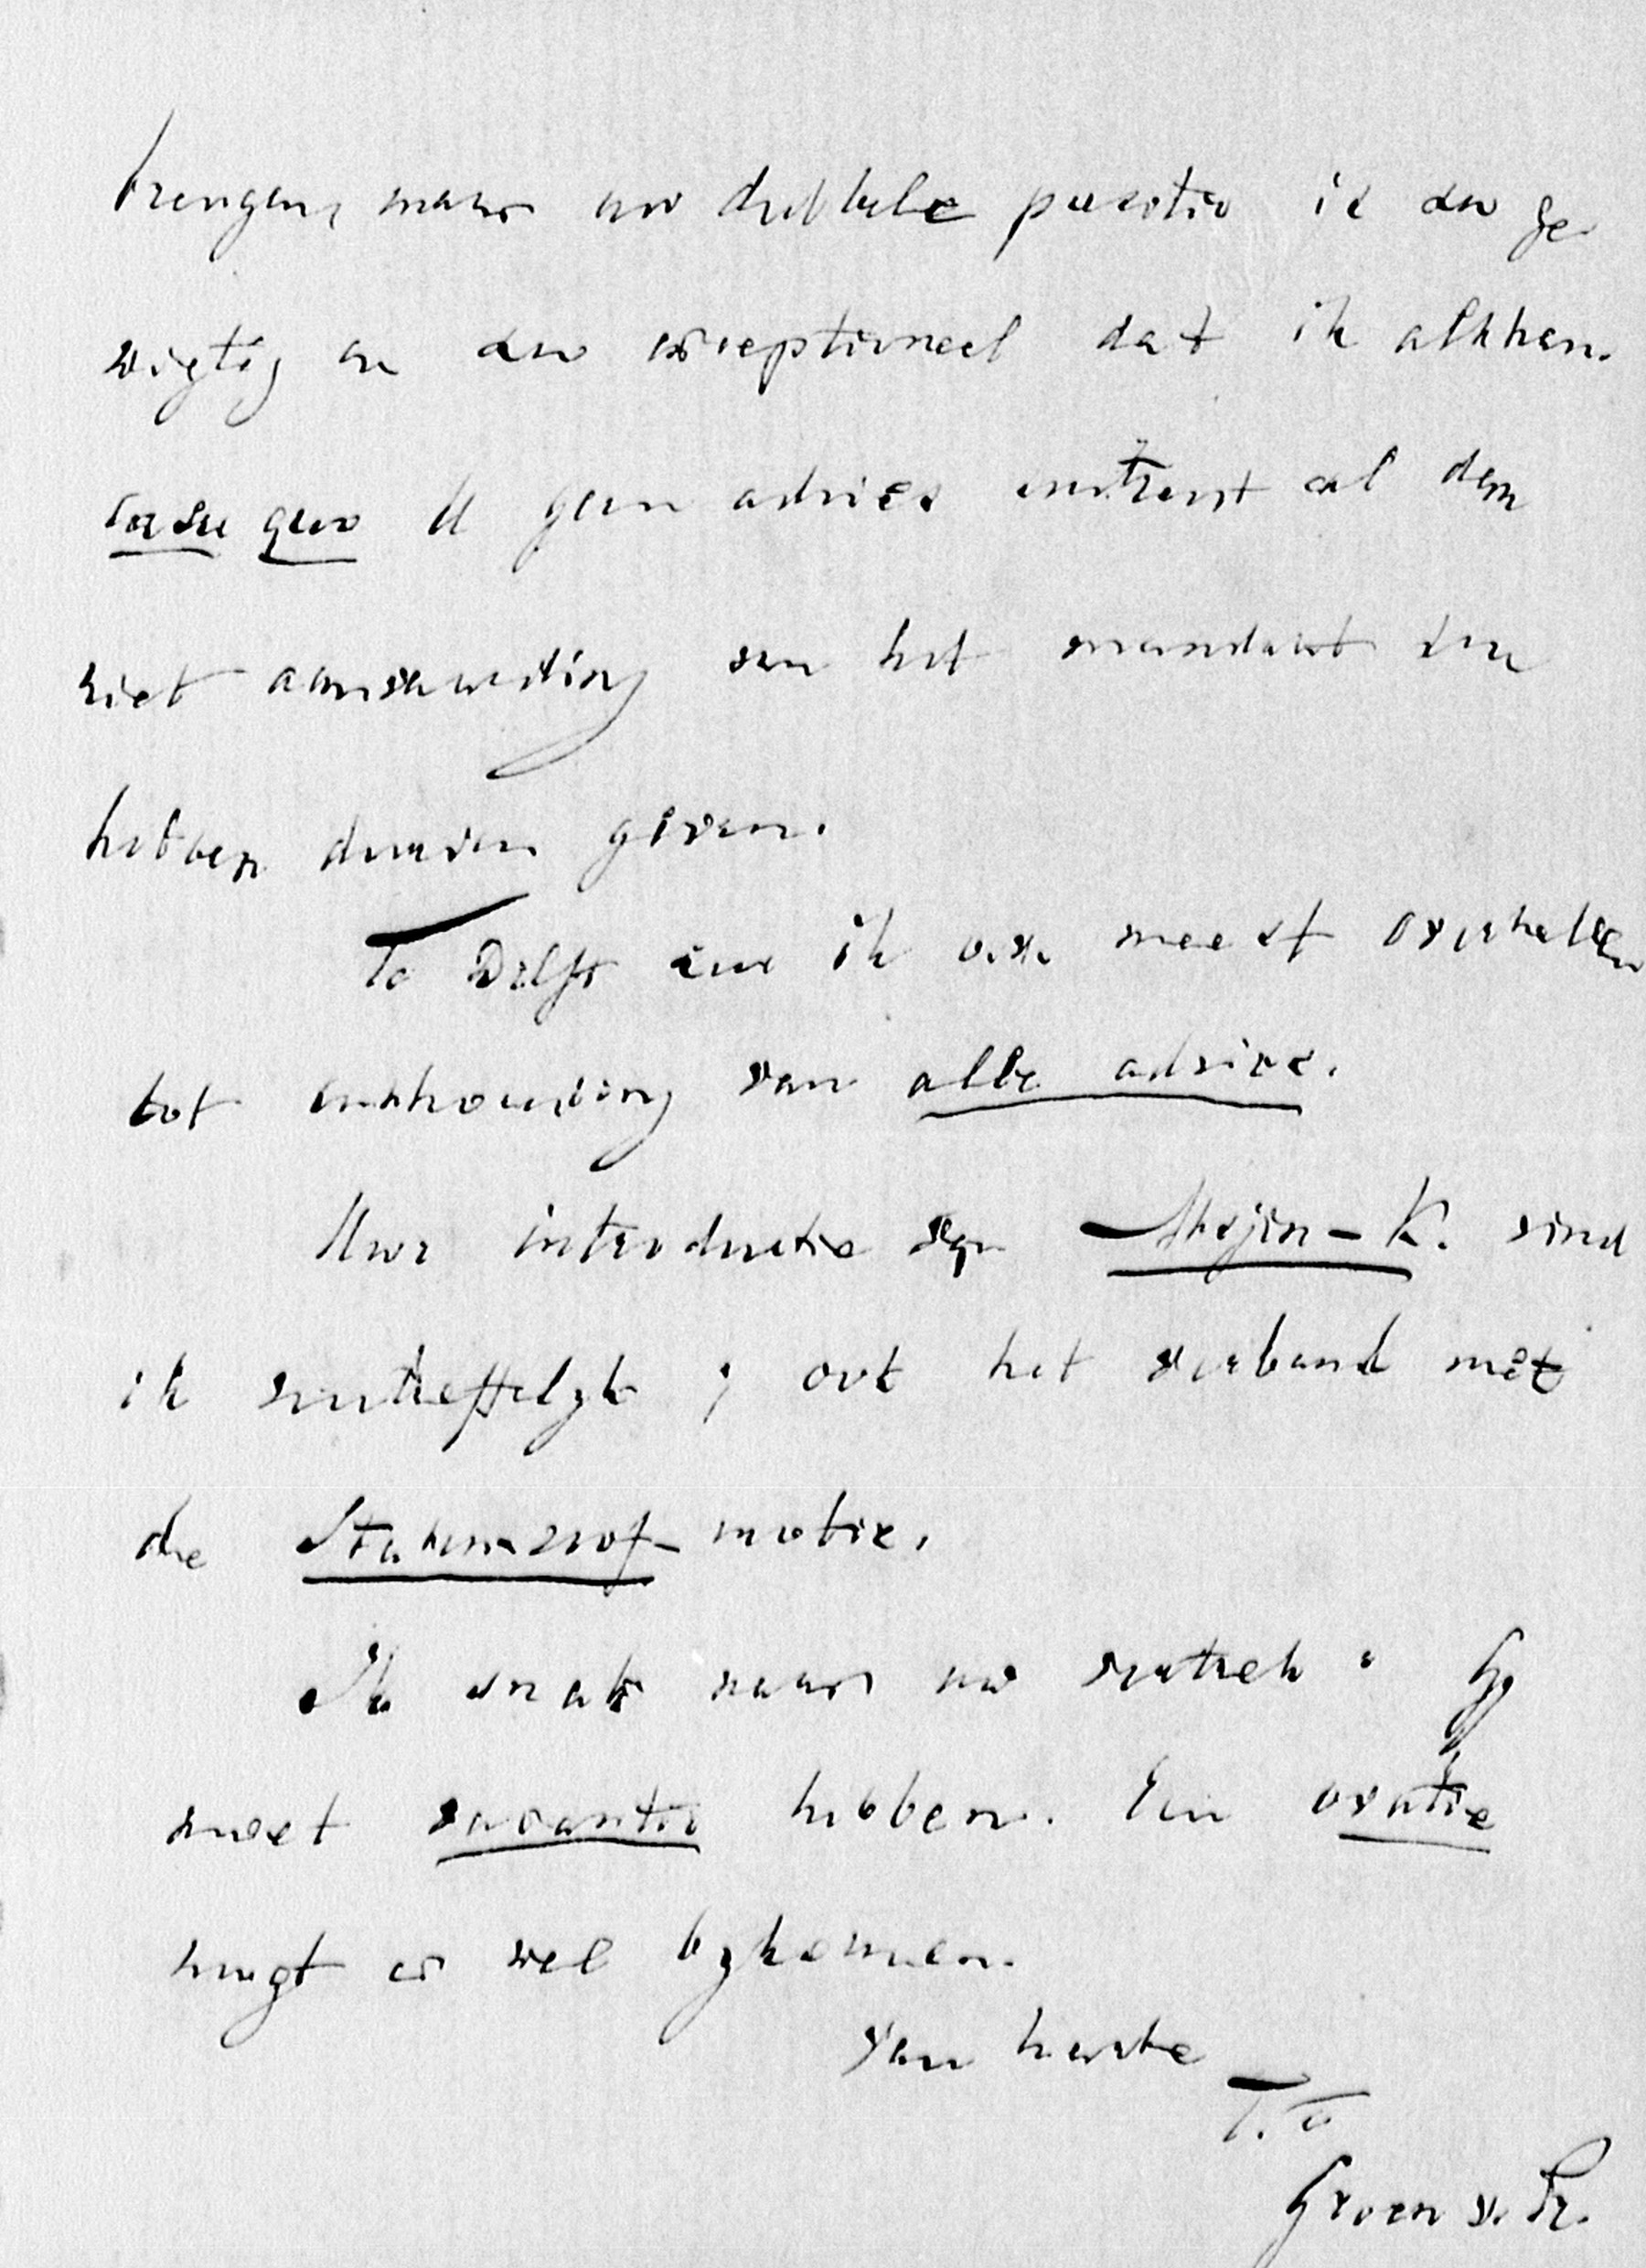 brengen, maar uw dubbele positie is zoo ge
wigtig en zoo exceptioneel dat ik althans
casu quo U geen advies omtrent al dan
niet aanvaarding van het mandaat zou
hebben durven geven.
Te Delft zou ik o.a. meest overhellen
tot onthouding van alle advies.
Uwe introductie van Stejin-K. vind
ik voortreffelijk; ook het verband met
de Stahmerhof-motie.
Ik snak naar uw vertrek: Gij
moet vacantie hebben. Een ovatie
mogt er wel bijkomen.
Van harte
T.t.
Groen v. Pr.